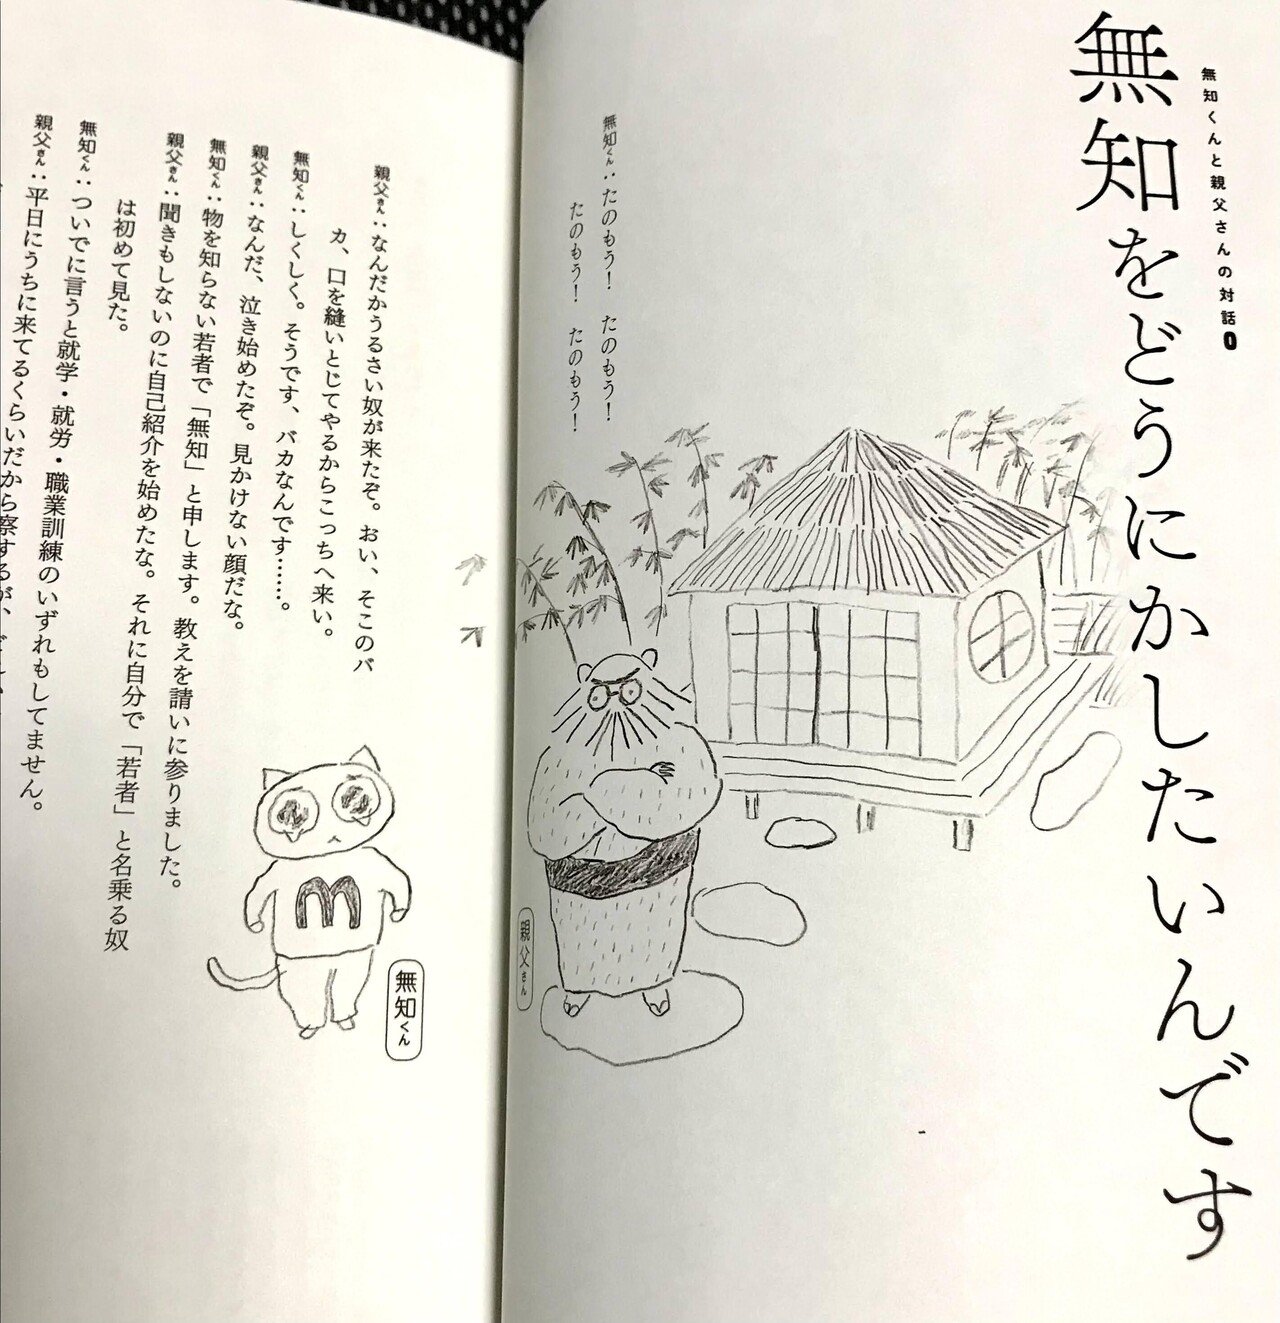 無知くんと親父さんの対話0
無知をどうにかしたいんです
無知くん：たのもう！　たのもう！
たのもう！　たのもう！
親父さん
親父さん：なんだかうるさい奴が来たぞ。おい、そこのバ
カ、口を縫いとじてやるからこっちへ来い。
無知くん：しくしく。そうです、バカなんです……。
親父さん：なんだ、泣き始めたぞ。見かけない顔だな。
無知くん：物を知らない若者で「無知」と申します。教えを請いに参りました。
親父さん：聞きもしないのに自己紹介を始めたな。それに自分で「若者」と名乗る奴
は初めて見た。
無知くん：ついでに言うと就学・就労・職業訓練のいずれもしてません。
親父さん：平日にうちに来てるくらいだから察するが、
m
無知くん